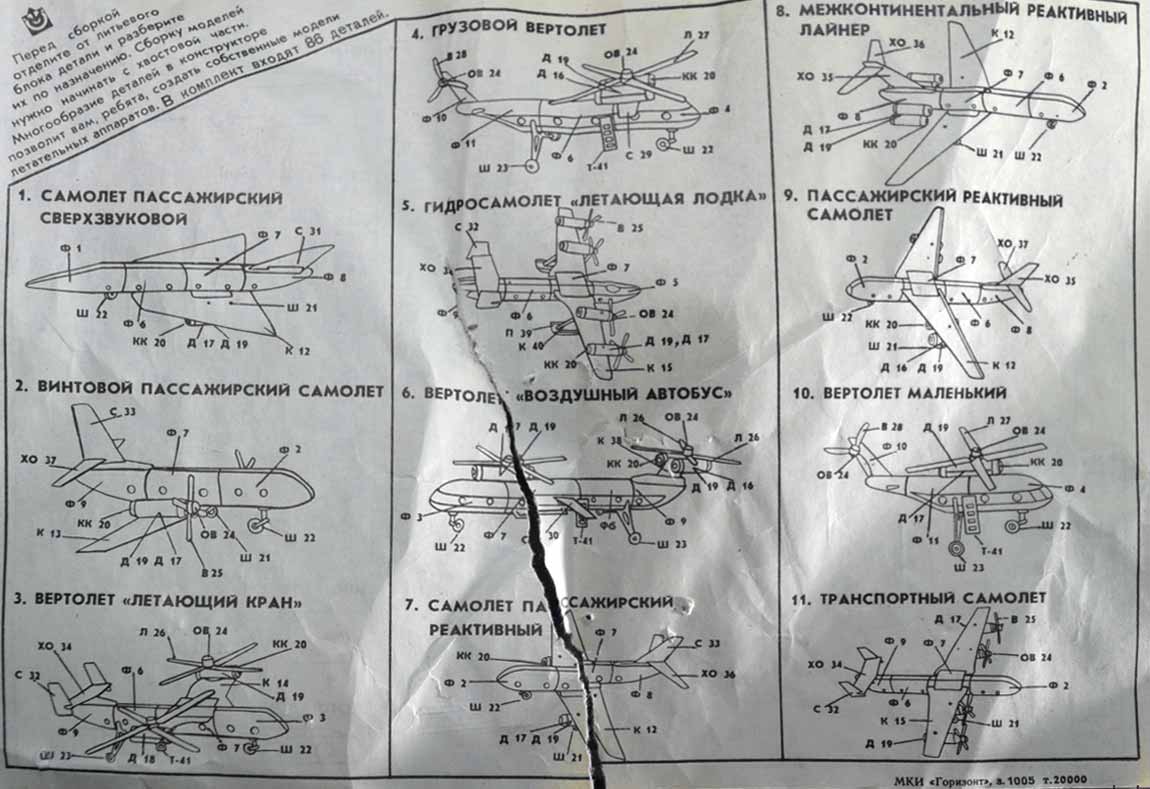 Перед сборкой
отделите от литьевого
блока детали и разберите
их по назначению. Сборку моделей
нужно начинать с хвостовой части.
Многообразие деталей в конструкторе
позволит вам, ребята, создать собственные модели
летательных аппаратов. В комплект входят 86 деталей.
1. САМОЛЕТ ПАССАЖИРСКИЙ
СВЕРХЗВУКОВОЙ
Ф 1
Ф 7
С 31
Ф 8
Ш 22
Ф 6
Ш 21
КК 20
Д 17
Д 19
К 12
2. ВИНТОВОЙ ПАССАЖИРСКИЙ САМОЛЕТ
С 33
Ф 7
Ф 2
ХО 37
Ф 9
КК 20
К 13
ОВ 24
Ш 22
Ш 21
Д 19
Д 17
В25
3. ВЕРТОЛЕТ «ЛЕТАЮЩИЙ КРАН»
Л 26
ОВ 24
КК 20
ХО 34
С 32
Ф 6
К 14
Д 19
Ф 3
Ф 9
Ф 7
Ш 22
Ш 23
Д 18
Т-41
4. ГРУЗОВОЙ ВЕРТОЛЕТ
В28
ОВ 24
Д 19
Д 16
ОВ 24
Л 27
КК 20
Ф 10
Ф 4
Ф 11
Ф 6
Ш 22
Ш 23
Т-41
С 29
5. ГИДРОСАМОЛЕТ «ЛЕТАЮЩАЯ ЛОДКА»
С 32
В 25
ХО
Ф 7
Ф 5
Ф 6
ОВ 24
П 39
К 40
Д 19, Д 17
КК 20
К 15
6. ВЕРТОЛЕТ «ВОЗДУШНЫЙ АВТОБУС»
Л 26
ОВ 24
Д 19
К 38
Л 26
КК 20
Д 19
Д 16
Ф 3
Ш 22
Ф 7
30
Т-41
Ф6
Ф 9
Ш 23
7. САМОЛЕТ ПАССАЖИРСКИЙ
РЕАКТИВНЫЙ
КК 20
Ф 7
С 33
Ф 2
ХО 36
Ф 8
Ш 22
Д 17
Д 19
К 12
Ш 21
8. МЕЖКОНТИНЕНТАЛЬНЫЙ РЕАКТИВНЫЙ
ЛАЙНЕР
ХО 36
К 12
ХО 35
Ф 7
Ф 6
Ф 2
Ф 8
Д 17
Д 19
КК 20
Ш 21
Ш 22
9. ПАССАЖИРСКИЙ РЕАКТИВНЫЙ
САМОЛЕТ
ХО 37
Ф 2
Ф 7
ХО 35
Ш 22
Ф 6
Ф 8
КК 20
Ш 21
Д 16
Д 19
К 12
10. ВЕРТОЛЕТ МАЛЕНЬКИЙ
В 28
Ф 10
Д 19
Л 27
ОВ 24
ОВ 24
КК 20
Ф 4
Д 17
Ф 11
Ш 22
Т-41
Ш 23
11. ТРАНСПОРТНЫЙ САМОЛЕТ
Д 17
В 25
Ф 9
Ф 7
ОВ 24
ХО 34
Ф 2
С 32
Ф 6
К 15
Ш 21
Д 19
МКИ «Горизонт», з. 1005 т. 20000